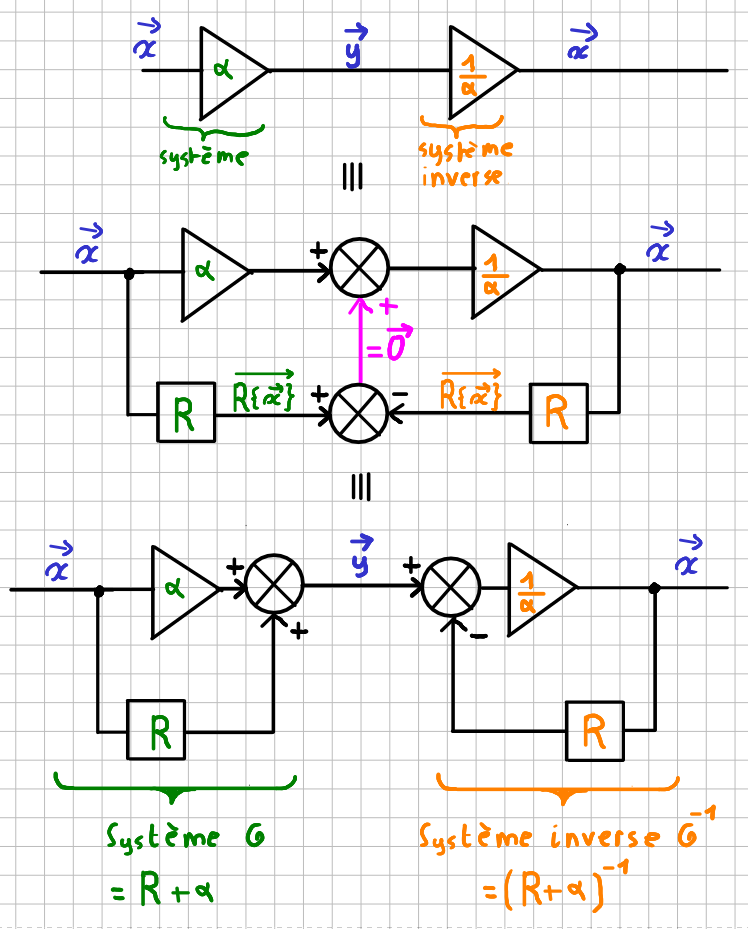 x⃗ y⃗ x⃗
α 1/α
système système inverse
≡
x⃗ α + 1/α x⃗
+
= 0⃗
R R{x⃗} + − R{x⃗} R
≡
x⃗ α + y⃗ + 1/α x⃗
+ −
R R
Système G Système inverse G⁻¹
= R + α = (R+α)⁻¹